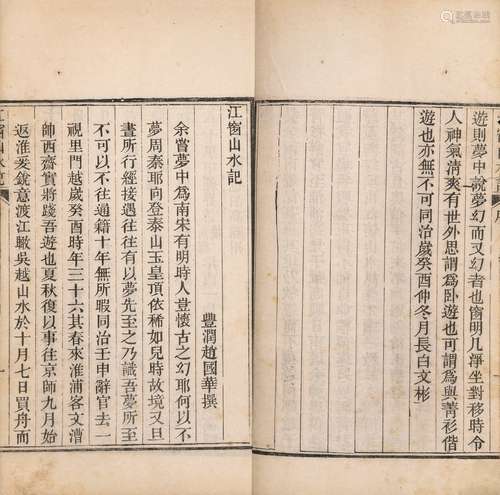 遊則夢中說夢幻而又幻者也窗明几淨坐對移時令
人神氣清爽有世外思謂爲臥遊也可謂爲與菁衫偕
遊也亦無不可同治歲癸酉仲冬月長白文彬
江窗山水記
豐潤趙國華撰
余嘗夢中爲南宋有明時人豈懷古之幻耶何以不
夢周秦耶向登泰山玉皇頂依稀如兒時故境又旦
晝所行經接遇往往有以夢先至之乃識吾夢所至
不可以不往通籍十年無所暇同治壬申辭官去一
視里門越歲癸酉時年三十六其春來淮浦客文漕
帥西齋實將踐吾遊也夏秋復以事往京師九月始
返淮爰銳意渡江轍吳越山水於十月七日買舟而
江窗山水記